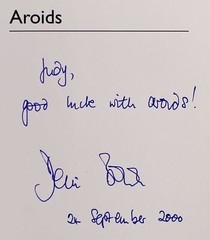 Aroids
Judy,
good luck with aroids!
September 2000